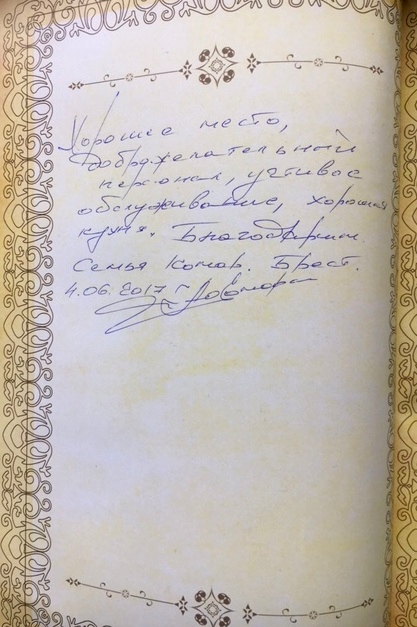 Хорошее место,
Доброжелательный
персонал, учтивое
обслуживание, хорошая
кухня. Благодарим.
Семья Комар. Брест.
4.06.2017 г.